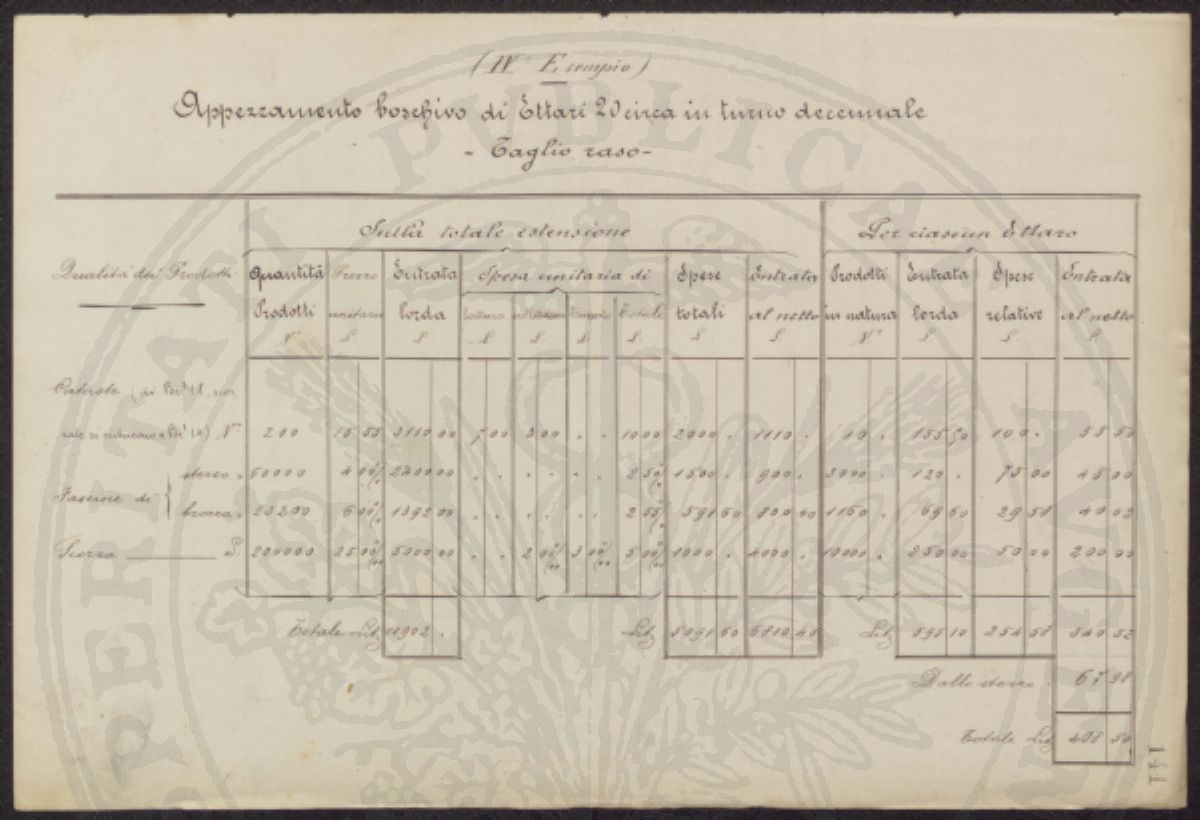 (IVº Esempio)
Appezzamento boschivo di Ettari 20 circa in turno decennale
- Taglio raso -
Sulla totale estensione Per ciascun Ettaro
Qualità dei Prodotti Quantità Prezzo Entrata Spesa unitaria di Spese Entrata Prodotti Entrata Spese Entrata
Prodotti unitario lorda Totale totali al netto in natura lorda relative al netto
Nº L L L L L L L L Nº L L L
Cataste
Nº 200 15 55 3110 00 7 00 3 00 . . 10 00 2000 . 1110 . 10 . 155 50 100 . 55 50
sterzo 60000 4 00 % 2400 00 . . . . . . 2 50 % 1500 . 900 . 3000 . 120 . 75 00 45 00
Fascine di
brocca 23200 6 00 % 1392 00 . . . . . . 2 55 % 591 60 800 40 1160 . 69 60 29 58 40 02
Scorza L 200000 25 00 5000 00 . . 2 00 3 00 5 00 1000 . 4000 . 10000 . 250 00 50 00 200 00
Totale Lit 11902 . Lit 5091 60 6810 40 Lit 595 10 254 58 340 52
Dallo sterzo 67 98
Totale Lit 408 50
141
PERITATI PVBLICAE AVGE